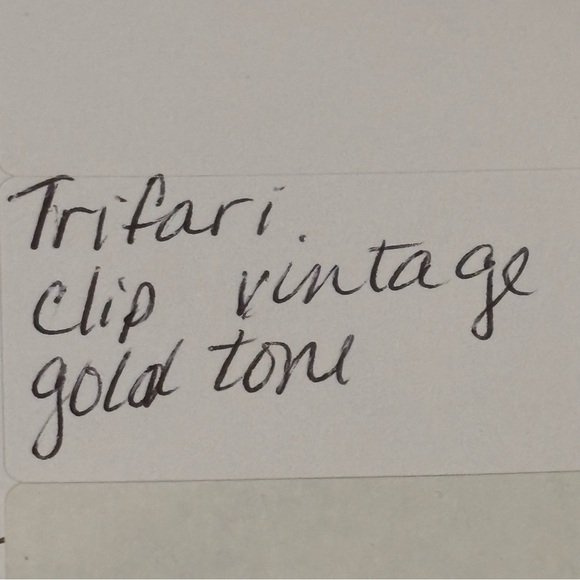 Trifari.
Clip vintage
gold tone